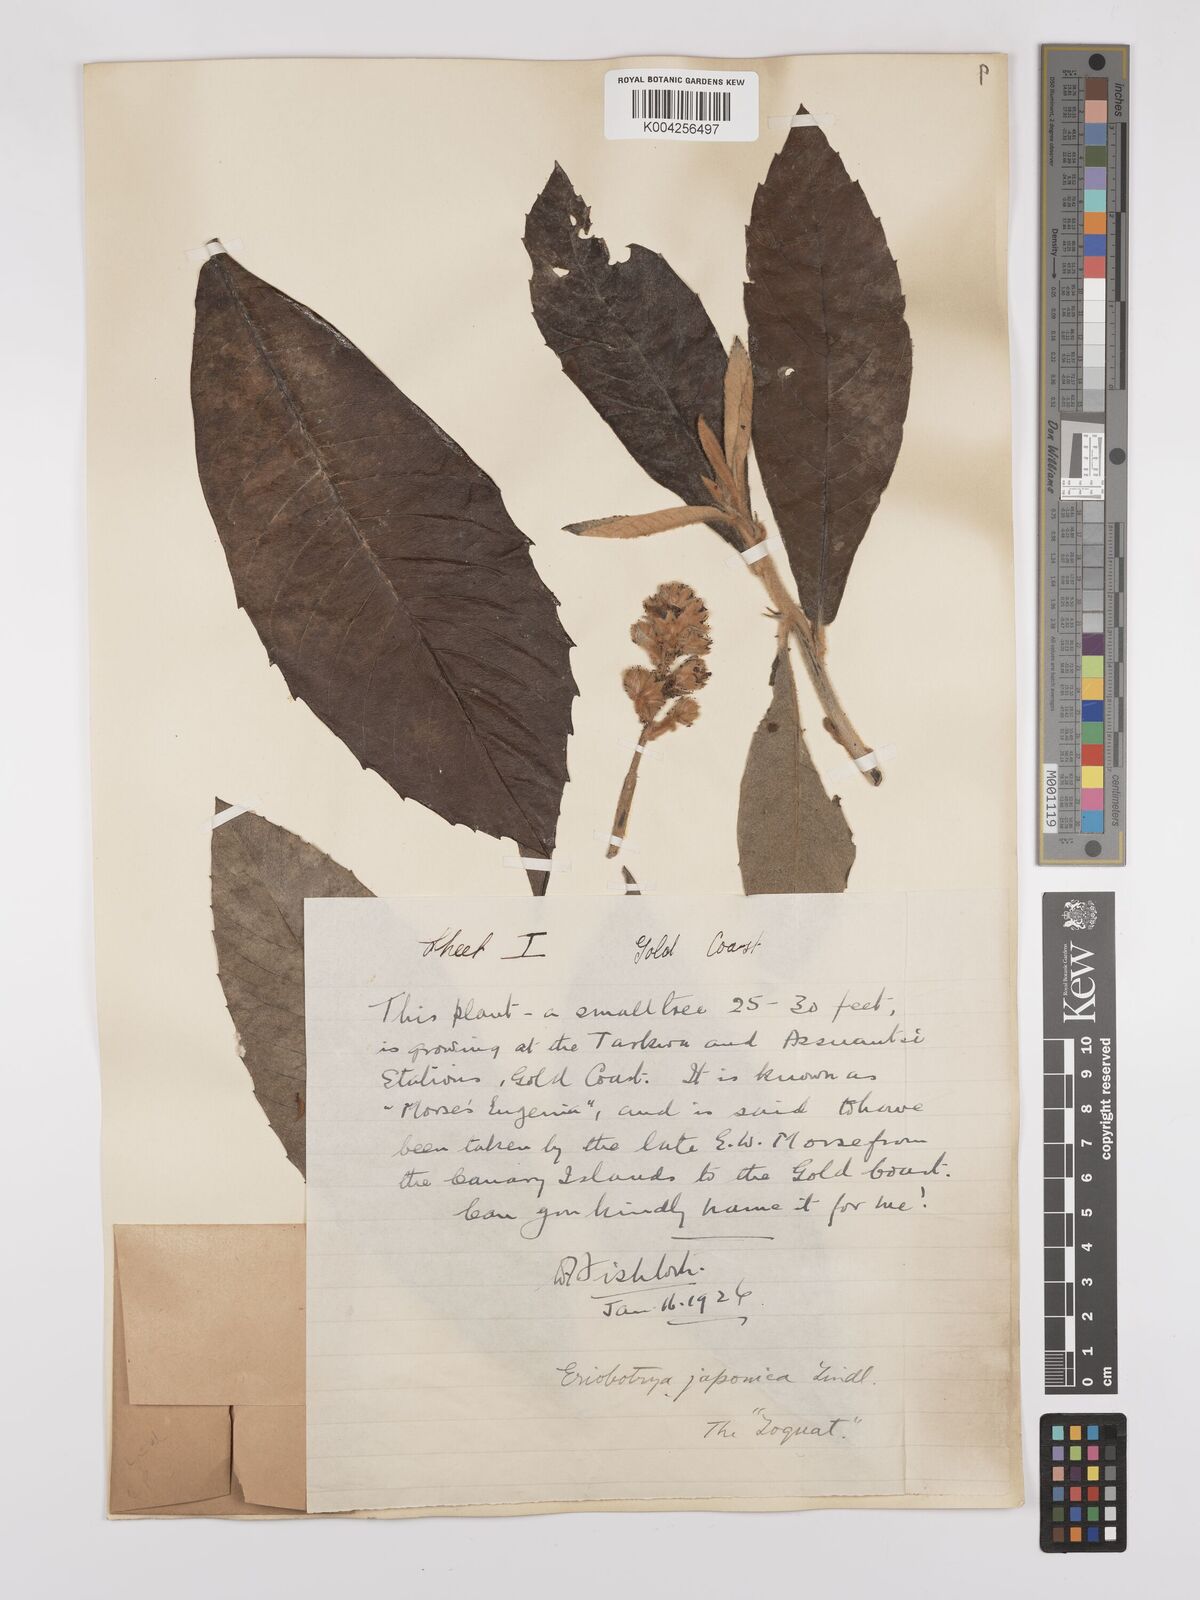 ROYAL BOTANIC GARDENS KEW
K004256497
Sheet I Gold Coast
This plant - a small tree 25-30 feet,
is growing at the Tarkwa and Assuantsi
Stations, Gold Coast. It is known as
"Morse's Eugenia", and is said to have
been taken by the late E.W. Morse from
the Canary Islands to the Gold Coast.
Can you kindly name it for me!
Jan. 16. 1926.
Eriobotrya japonica Lindl.
The "Loquat."
inches
Density
Don Williams
M001119
centimeters
Kew
Royal Botanic Gardens
copyright reserved
cm
0 1 2 3 4 5 6 7 8 9 10